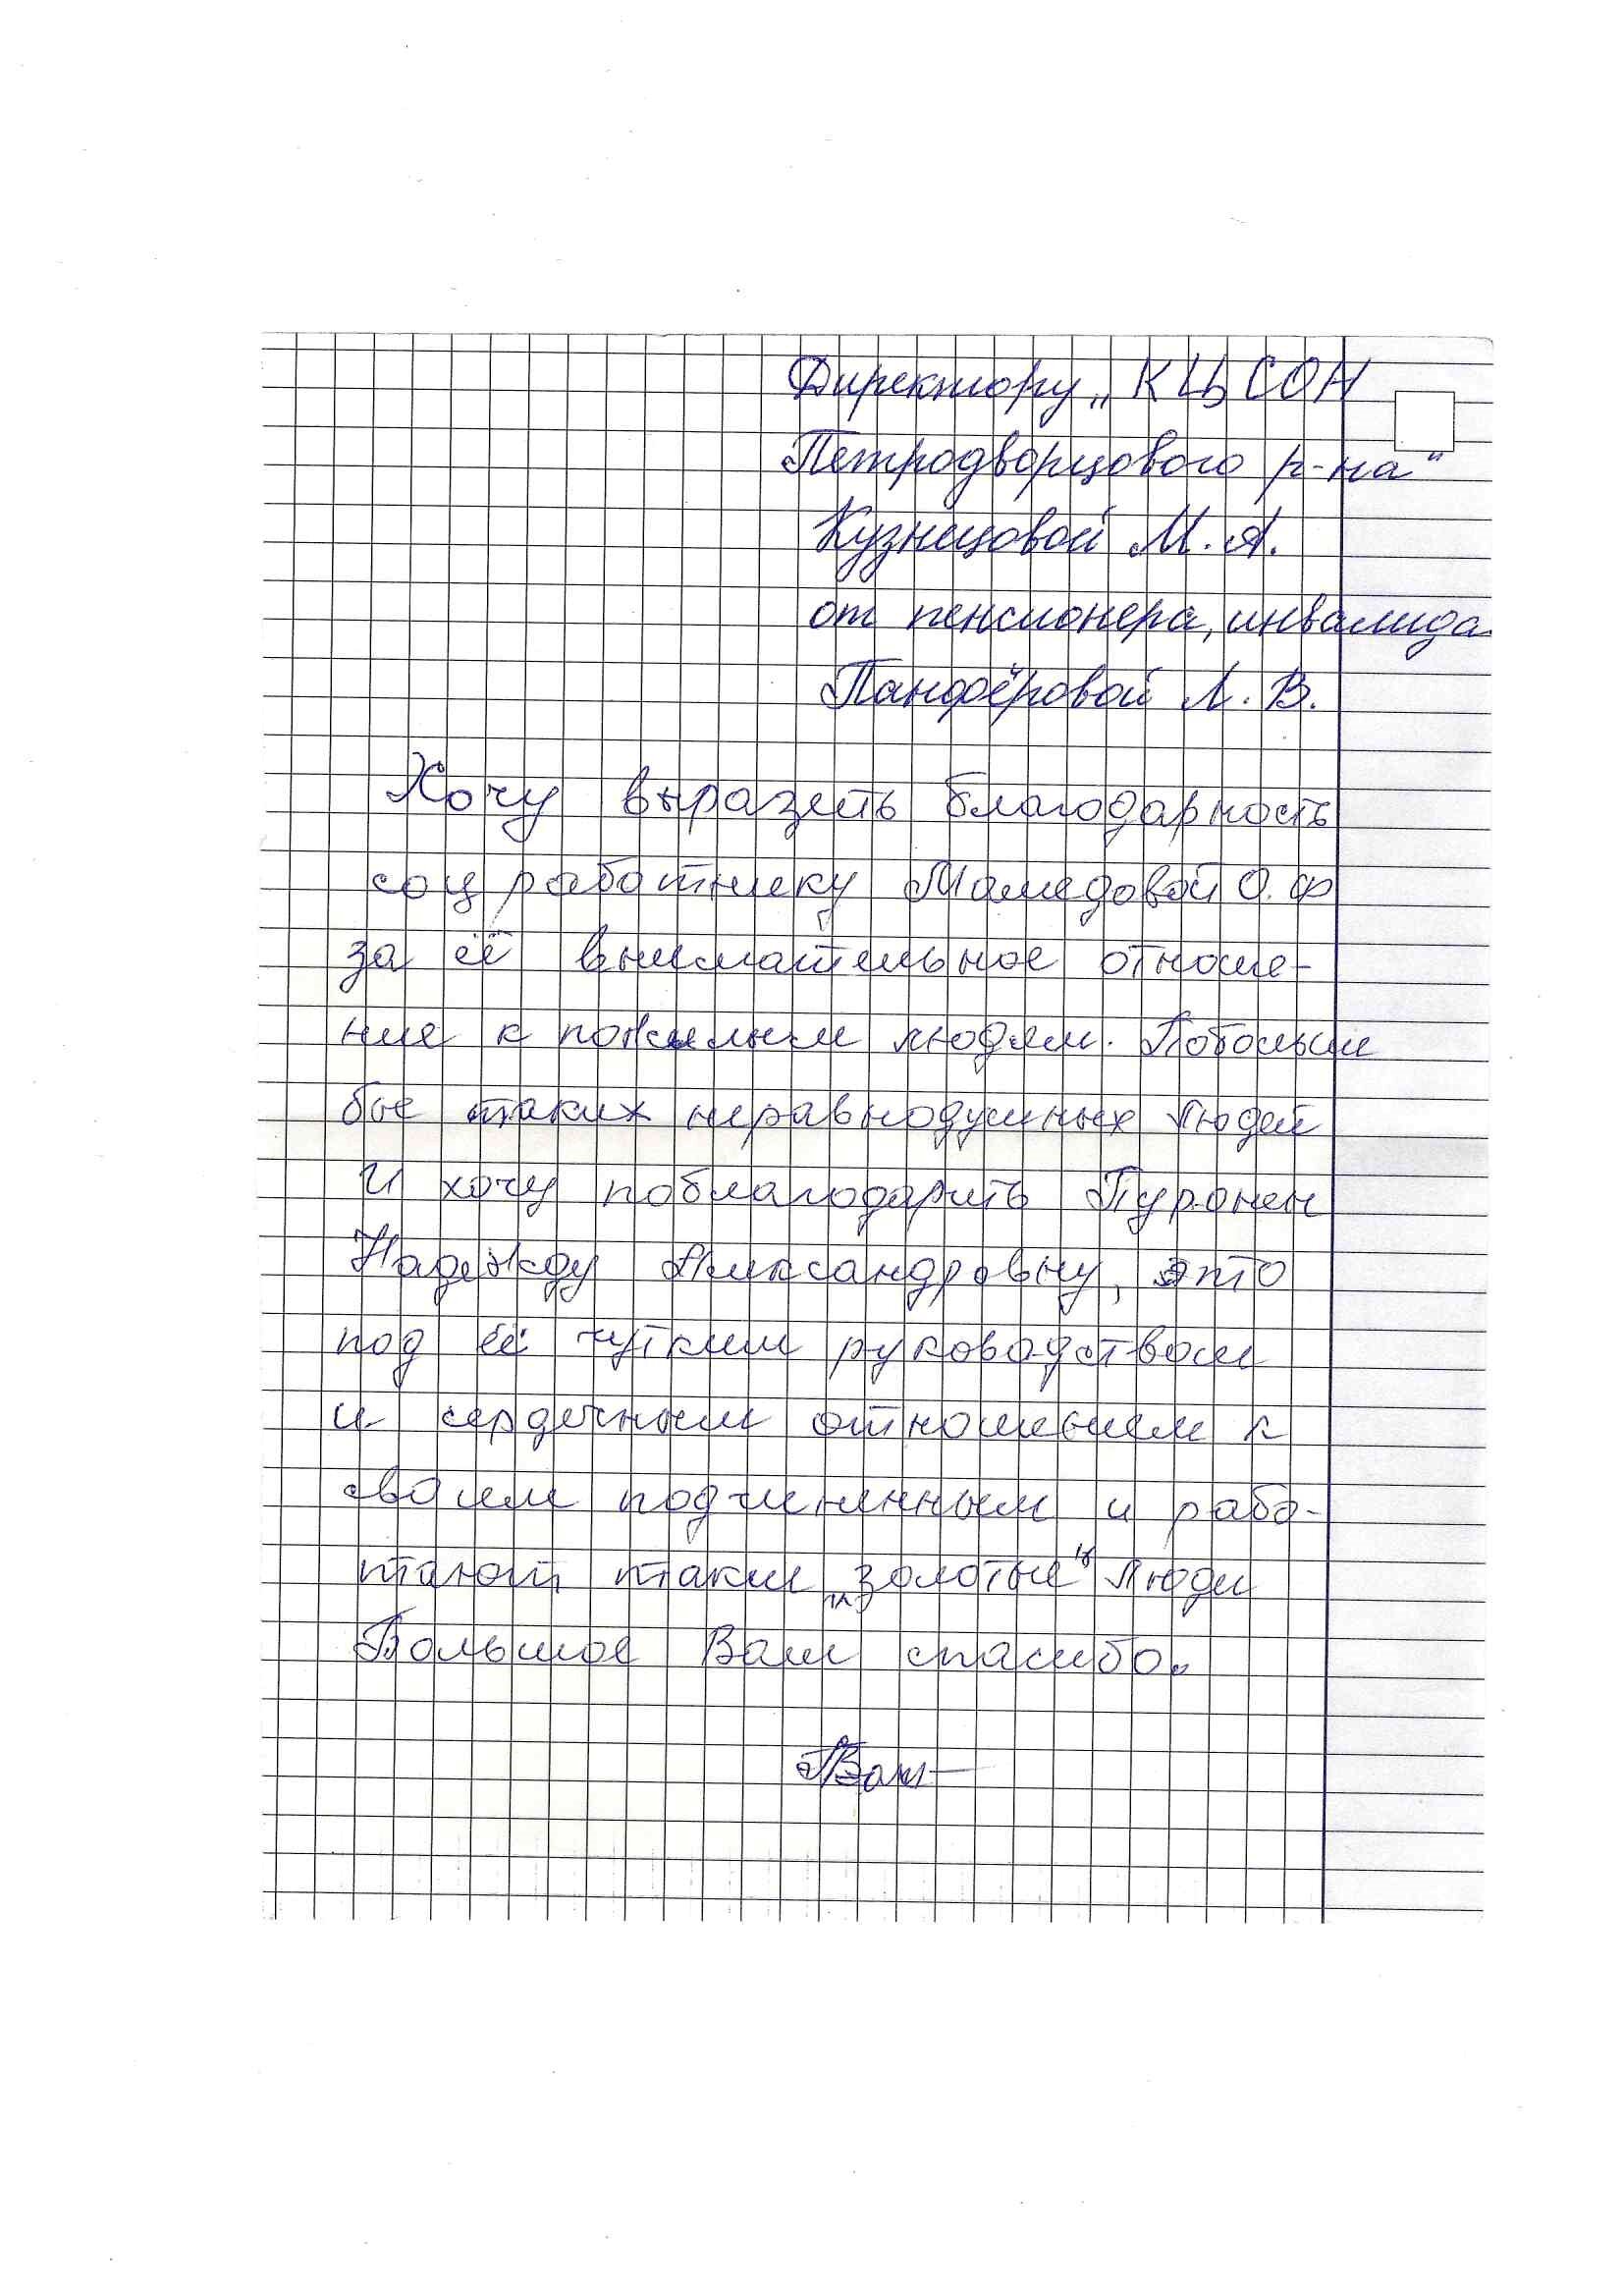 Директору „КЦСОН
Петродворцового р-на"
Кузнецовой М. А.
от пенсионера, инвалида
Панфёровой Л. В.
Хочу выразить благодарность
соцработнику Мамедовой О. Ф
за её внимательное отноше-
ние к пожилым людям. Побольше
бы таких неравнодушных людей
И хочу поблагодарить Пуронен
Надежду Александровну, это
под её чутким руководством
и сердечным отношением к
своим подчиненным и рабо-
тают такие „золотые" люди
Большое Вам спасибо.